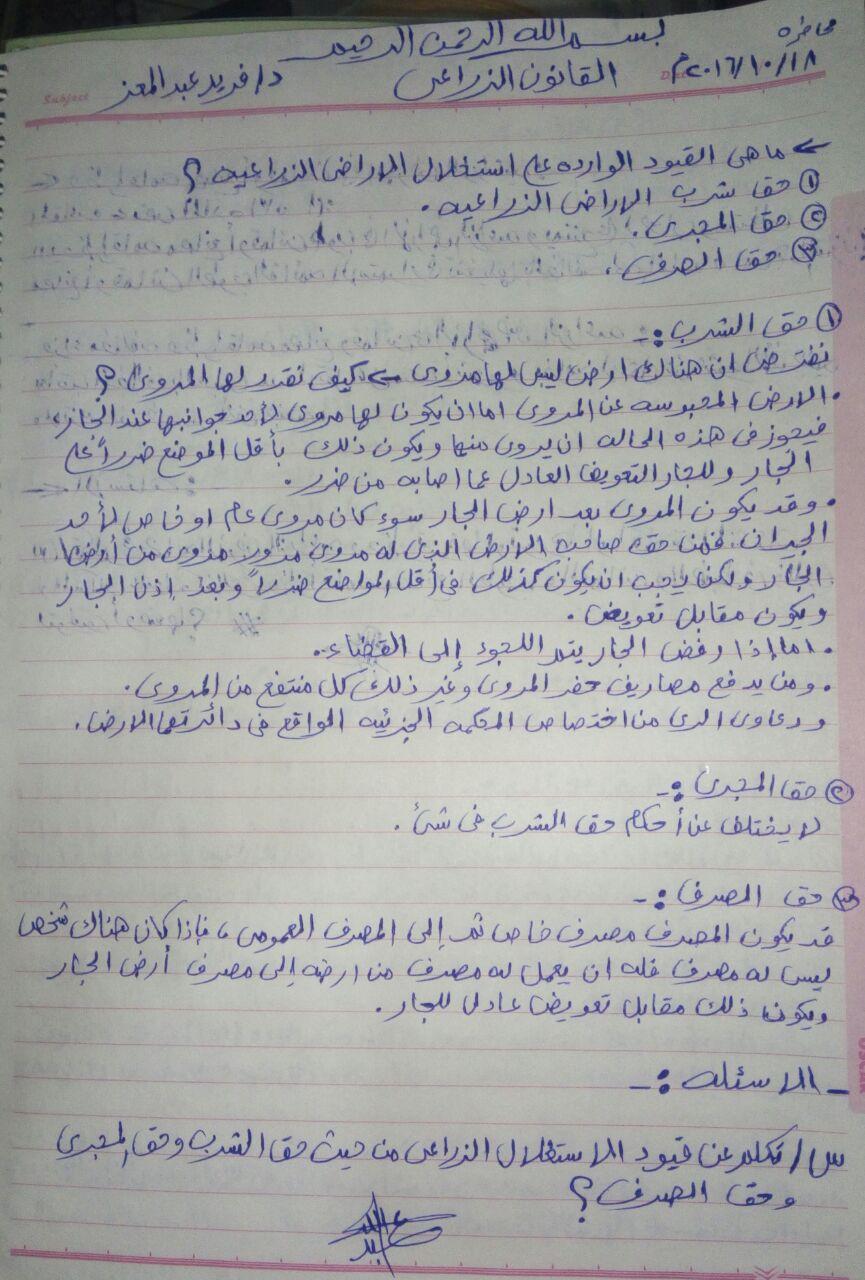 بسم الله الرحمن الرحيم
محاضره
١٨/١٠/٢٠١٦م القانون الزراعى د/ فريد عبد المعز
Subject
← ما هى القيود الوارده على استغلال الاراضى الزراعيه ؟
① حق شرب الاراضى الزراعيه .
② حق المجرى .
③ حق الصرف .
① حق الشرب :-
نفترض ان هناك ارض ليس لها مروى ← كيف تقدر لها المروى ؟
• الارض المحبوسه عن المروى اما ان يكون لها مروى لأحد جوانبها عند الجار،
فيجوز فى هذه الحاله ان يروى منها ويكون ذلك بأقل الموضع ضرراً على
الجار وللجار التعويض العادل عما اصابه من ضرر .
• وقد يكون المروى بعد ارض الجار سوء كان مروى عام او خاص لأحد
الجيران فمن حق صاحب الارض الذى له مروى مروى من أرض
الجار ولكن يجب ان يكون كذلك فى أقل المواضع ضرراً وبعد إذن الجار
ويكون مقابل تعويض .
• اما إذا رفض الجار يتم اللجوء إلى القضاء .
• ومن يدفع مصاريف حفر المروى وغير ذلك كل منتفع من المروى .
ودعاوى الرى من اختصاص المحكمه الجزئيه الواقع فى دائرتها الارض .
② حق المجرى :-
لا يختلف عن أحكام حق الشرب فى شئ .
③ حق المصرف :-
قد يكون المصرف مصرف خاص ثم إلى المصرف العمومى، فإذا كان هناك شخص
ليس له مصرف فله ان يعمل له مصرف من ارضه إلى مصرف أرض الجار
ويكون ذلك مقابل تعويض عادل للجار .
- الاسئله :-
س/ تكلم عن قيود الاستغلال الزراعى من حيث حق الشرب وحق المجرى
وحق الصرف ؟